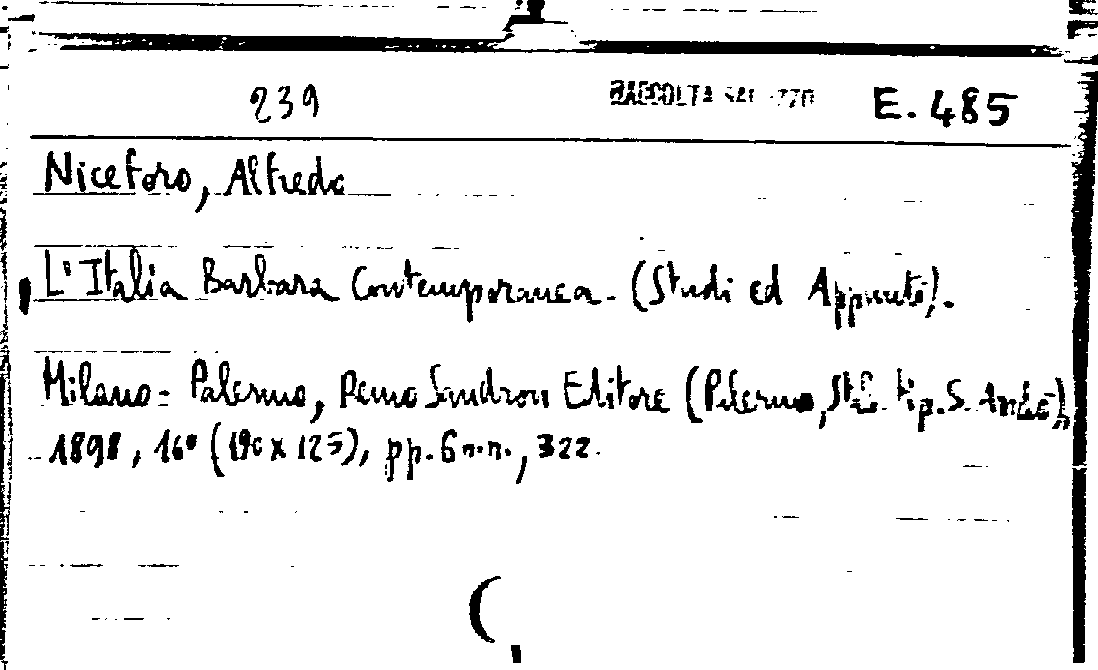 239 RACCOLTA E. 485
Niceforo, Alfredo
L'Italia Barbara Contemporanea - (Studi ed Appunti).
Milano - Palermo, Remo Sandron Editore (Palermo, Stab. tip. S. Andò),
1898, 16° (190 x 125), pp. 6 n.n., 322.